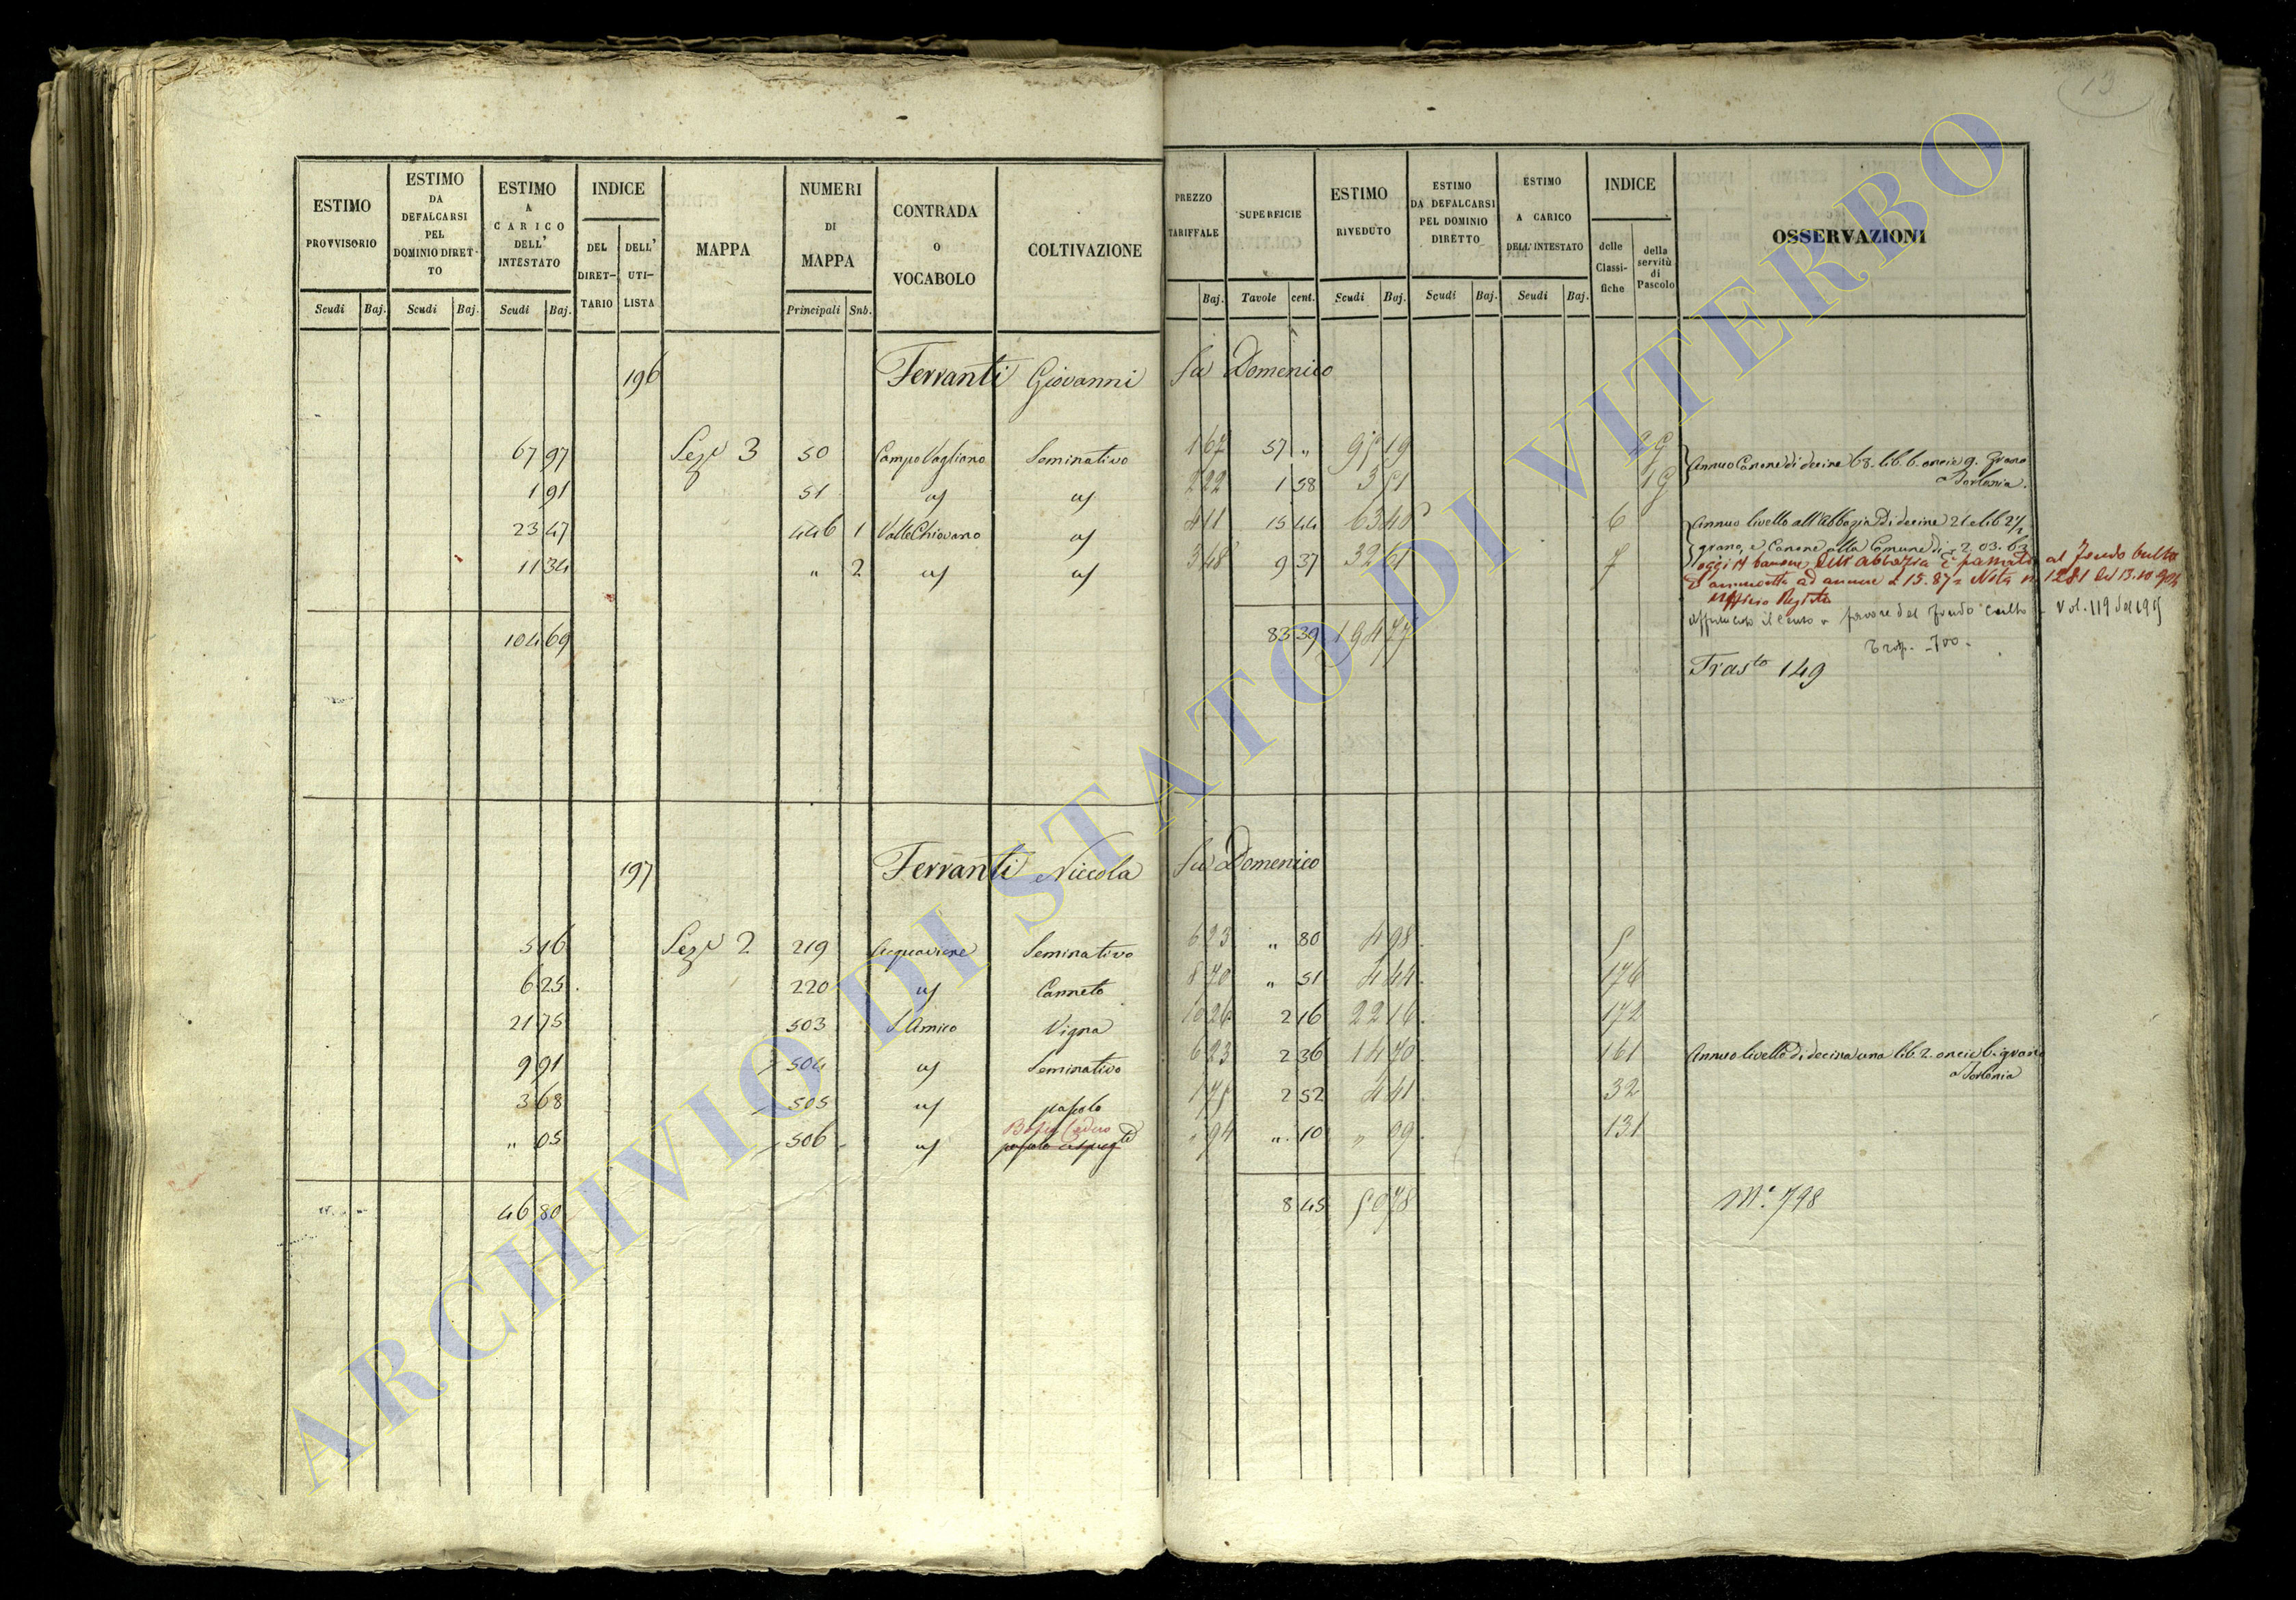 13
ESTIMO PROVVISORIO
Scudi Baj.
ESTIMO DA DEFALCARSI PEL DOMINIO DIRETTO
Scudi Baj.
ESTIMO A CARICO DELL' INTESTATO
Scudi Baj.
INDICE
DEL DIRETTARIO
DELL' UTILISTA
MAPPA
NUMERI DI MAPPA
Principali Sub.
CONTRADA O VOCABOLO
COLTIVAZIONE
PREZZO TARIFFALE
Baj.
SUPERFICIE
Tavole cent.
ESTIMO RIVEDUTO
Scudi Baj.
ESTIMO DA DEFALCARSI PEL DOMINIO DIRETTO
Scudi Baj.
ESTIMO A CARICO DELL' INTESTATO
Scudi Baj.
INDICE
delle Classifiche
della servitù di Pascolo
OSSERVAZIONI
196 Ferranti Giovanni fu Domenico
67 97 Sez.e 3 50 Campo Vagliano Seminativo 1 67 57 „ 95 19 2 G
1 91 51 " " 2 22 1 58 3 51 1 G
Annuo Canone di decine 68. lib. 6. oncie 9. grano
a Torlonia.
23 47 446 1 Valle Chiovano " 4 11 15 44 63 46 6
11 34 „ 2 " " 3 48 9 37 32 61 7
Annuo livello all'Abbazia di decine 21 e lib 2½
grano, e Canone alla Comune di s 2. 03. 63
oggi il canone dell'Abbazia è passato al fondo culto
Uffizio Registro
affrancato il censo a favore del fondo culto Vol. 119 del 1915
104 69 83 39 194 77
Tras.to 149
197 Ferranti Niccola fu Domenico
5 16 Sez.e 2 219 Acquaviene Seminativo 6 23 „ 80 4 98 5
6 25 220 " Canneto 8 70 „ 51 4 44 176
21 75 503 S. Amico Vigna 10 26 2 16 22 16 172
9 91 504 " Seminativo 6 23 2 36 14 70 161
Annuo livello di decina una lib 2. oncie 6. grano
a Torlonia
3 68 505 " pascolo 1 75 2 52 4 41 32
„ 05 506 " Bosco Ceduo „ 94 „ 10 „ 09 131
46 80 8 45 50 78
M.e 798
ARCHIVIO DI STATO DI VITERBO